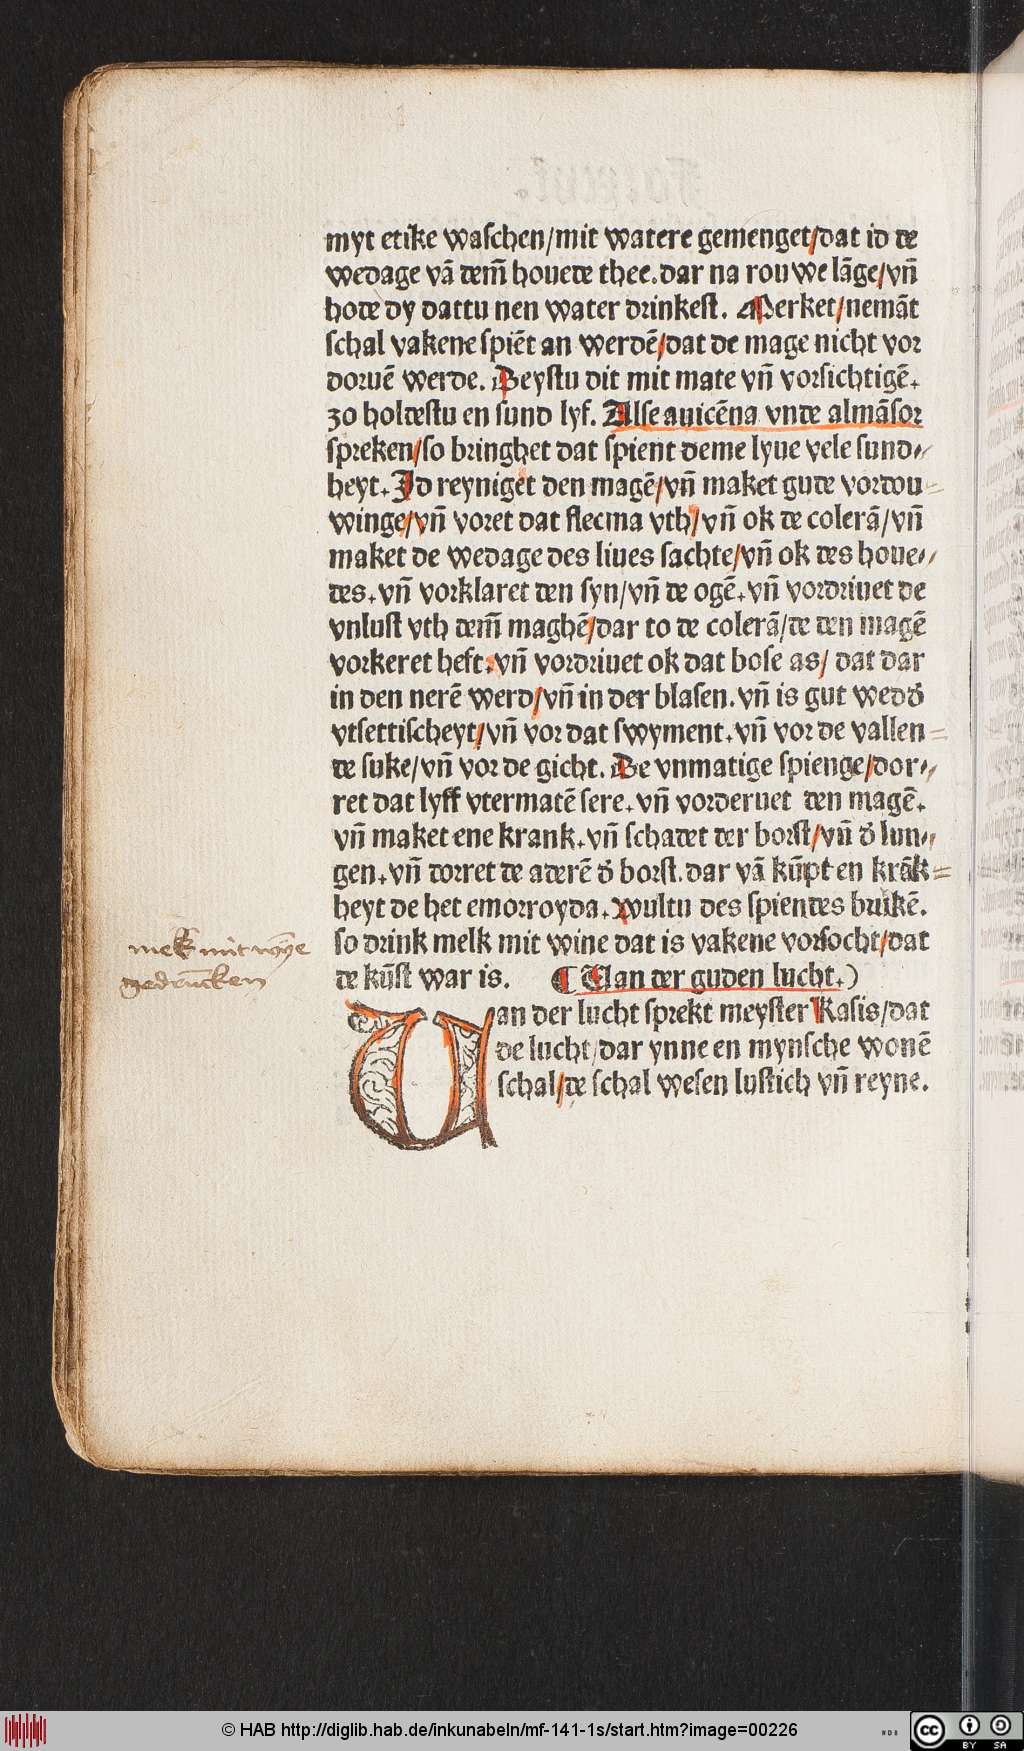 myt etike waſchen/mit watere gemenget/dat id de
wedage vā dem̄ houede thee.dar na rouwe lāge/vn̄
hode dy dattu nen water drinkeſt. Merket/nemāt
ſchal vakene ſpiēt an werdē/dat de mage nicht vor
doruē werde. Deyſtu dit mit mate vn̄ vorſichtigē.
zo holdeſtu en ſund lyf. Alſe auicēna vnde almāſor
ſpreken/ſo bringhet dat ſpient deme lyue vele ſund⸗
heyt. Id reyniget den magē/vn̄ maket gude vordou⸗
winge/vn̄ voret dat flecma vth/vn̄ ok de colerā/vn̄
maket de wedage des liues ſachte/vn̄ ok des houe⸗
des.vn̄ vorklaret den ſyn/vn̄ de ogē.vn̄ vordriuet de
vnluſt vth dem̄ maghē/dar to de colerā/de den magē
vorkeret heft.vn̄ vordriuet ok dat boſe as/ dat dar
in den nerē werd/vn̄ in der blaſen.vn̄ is gut wedđ
vtſettiſcheyt/vn̄ vor dat ſwyment.vn̄ vor de vallen⸗
de ſuke/vn̄ vor de gicht. De vnmatige ſpienge/dor⸗
ret dat lyff vtermatē ſere.vn̄ vorderuet den magē.
vn̄ maket ene krank.vn̄ ſchadet der borſt/vn̄ đ lun⸗
gen.vn̄ dorret de aderē đ borſt.dar vā kūpt en krāk⸗
heyt de het emorroyda. Wultu des ſpiendes brukē.
ſo drink melk mit wine dat is vakene vorſocht/dat
de kūſt war is. ¶ Uan der guden lucht.)
Uan der lucht ſprekt meyſter Raſis/dat
de lucht/dar ynne en mynſche wonē
ſchal/de ſchal weſen luſtich vn̄ reyne.
mek mit wyne
gedrūcken
© HAB http://diglib.hab.de/inkunabeln/mf-141-1s/start.htm?image=00226
WDB
cc BY SA